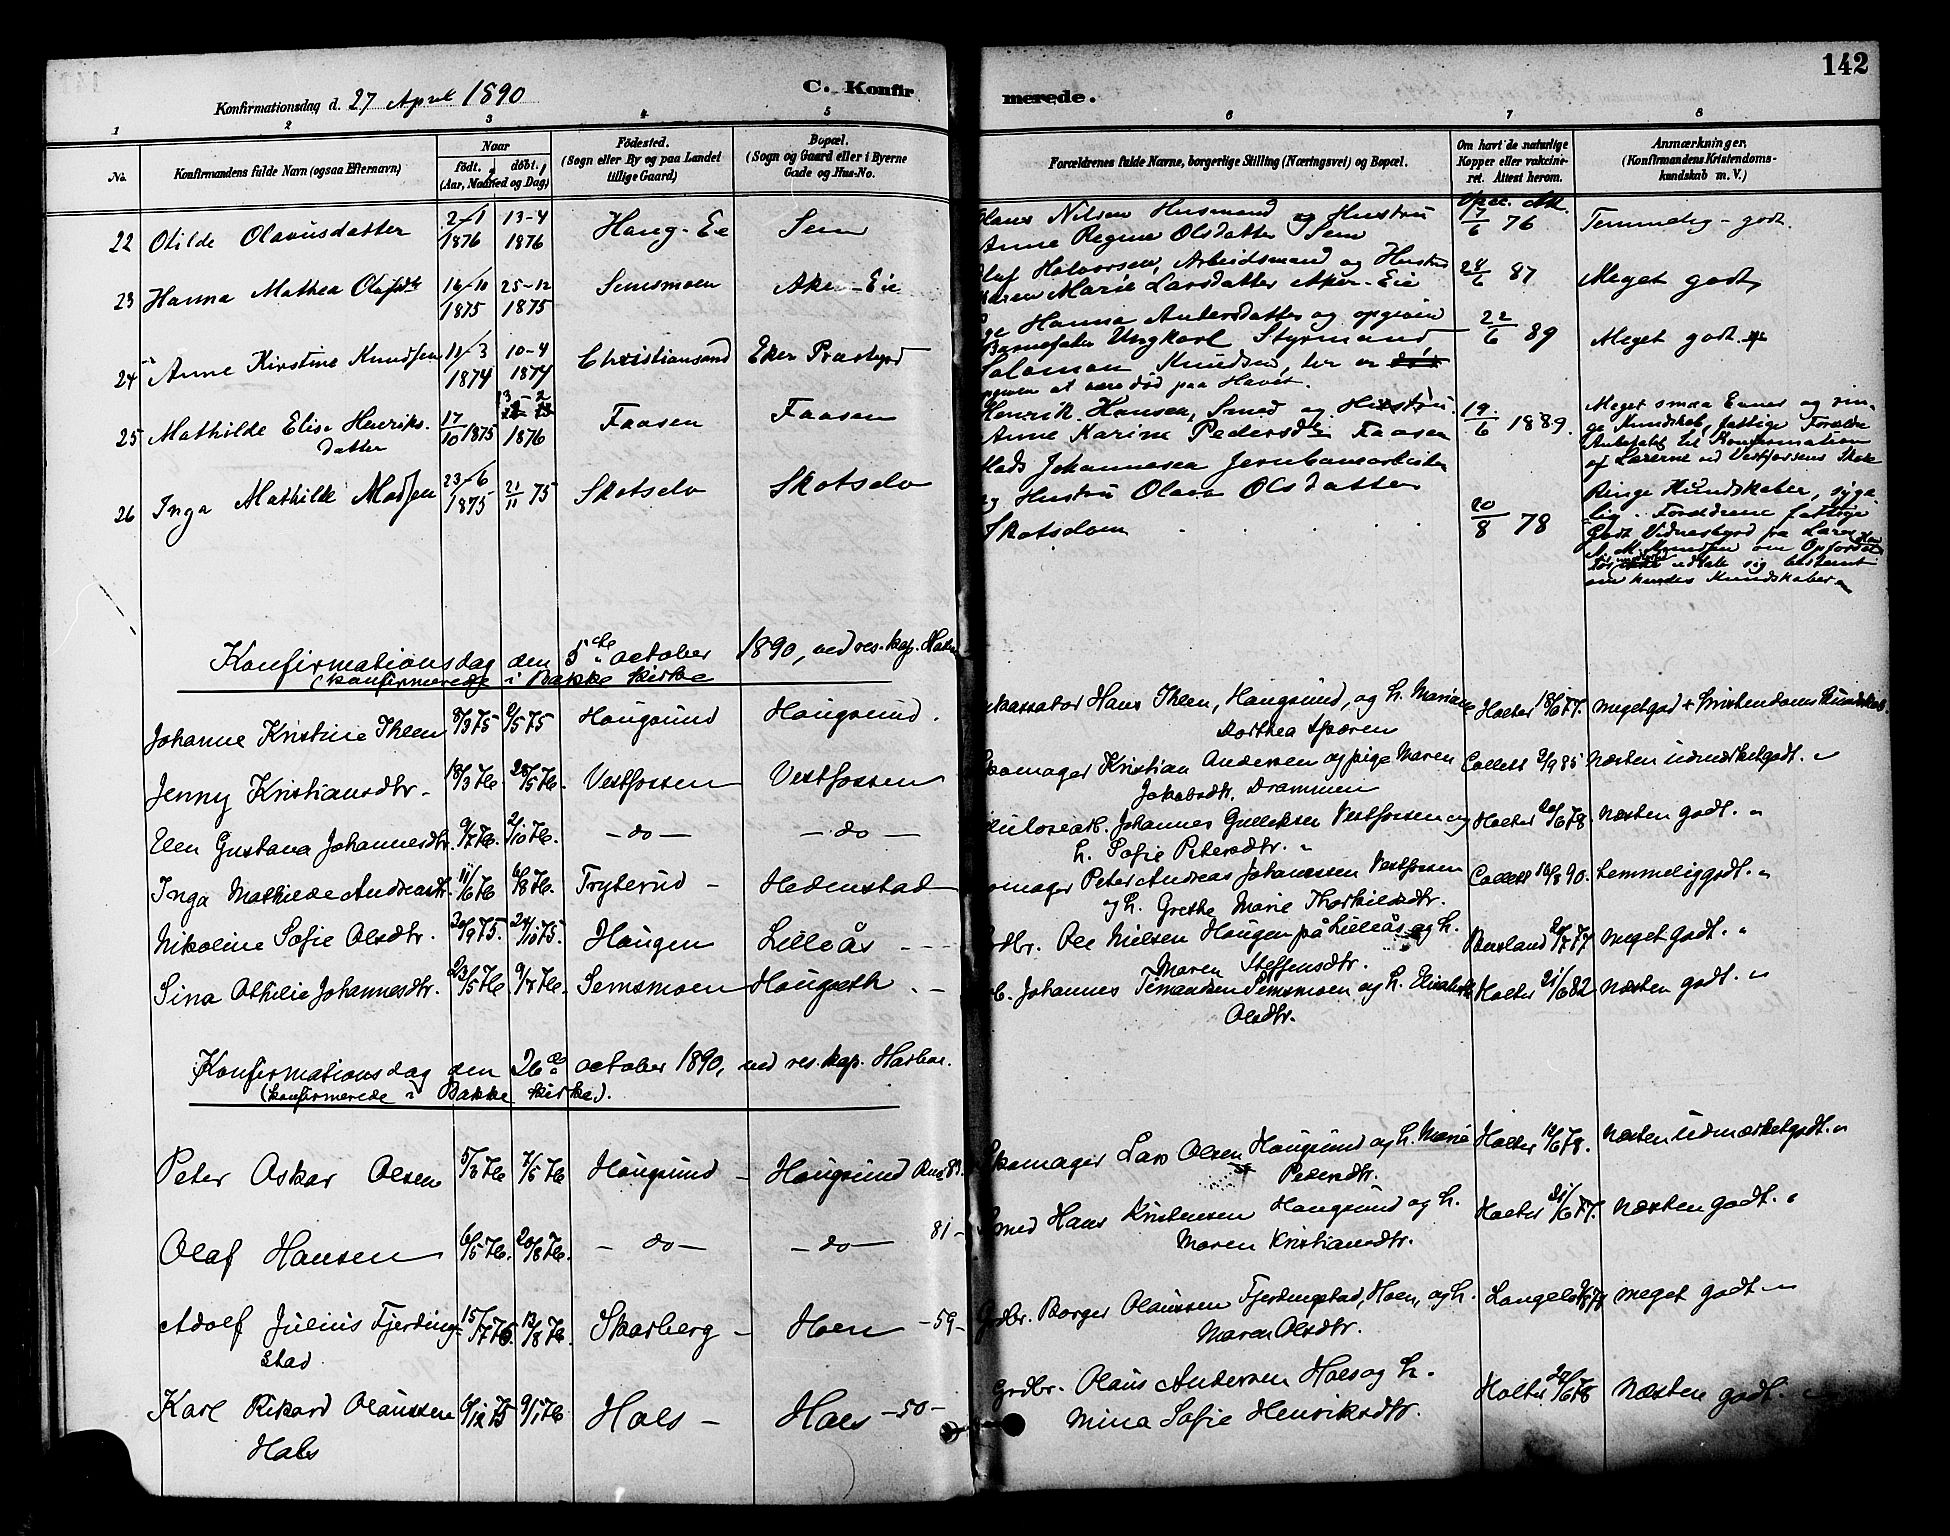 142
Konfirmationsdag d. 27 April 1890
C. Konfirmerede.
1 2 3 4 5 6 7 8
No.
Konfirmandens fulde Navn (ogsaa Efternavn)
Naar
født. døbt.
(Aar, Maaned og Dag)
Fødested.
(Sogn eller By og paa Landet
tillige Gaard)
Bopæl.
(Sogn og Gaard eller i Byerne
Gade og Hus-No.
Forældrenes fulde Navne, borgerlige Stilling (Næringsvei) og Bopæl.
Om havt de naturlige
Kopper eller vakcine-
ret. Attest herom.
Anmærkninger.
(Konfirmandens Kristendoms-
kundskab m. V.)
22 Otilde Olavusdatter 2-1 1876 13-4 1876 Haug-Eie Sem
Nilsen Husmand og Hustru
Anne Regine Olsdatter Sem
7/6 76 Temmelig godt.
23 Hanna Mathea Olafsdtr 16-10 1875 25-12 1875 Semsmoen Aker-Eie
Olaf Halvorsen, Arbeidsmand og Hustru
Karen Marie Larsdatter Aker-Eie
24/6 87 Meget godt
24 Anne Kirstine Knudsen 11-3 1874 10-4 1874 Christiansand Eker Præstegrd
Hanna Andersdatter og opgiven
Barnefader Ungkarl Styrmand
Salomon Knudsen, der er
opgiven at være død paa Havet.
22/6 89 Meget godt.
25 Mathilde Elise Henriks- 17/10 1875 1876 Faasen Faasen
datter
Henrik Hansen, Smed og Hustru
Anne Karine Pedersdtr Faasen
19/6 1889.
Meget smaa Evner og rin-
ge Kundskab, fattige Forældre
Anbefalet til Konfirmation
af Lærerne ved Vestfossens Skole
26 Inga Mathilde Madsen 23-6 1875 21/11 75 Skotselv Skotselv
Mads Johannesen Jernbanearbeider
og Hustru Olava Olsdatter
Skotselven
20/8 78
Ringe Kundskaber, syge-
lig. Forældrene fattige
Godt Vidnesbyrd fra Lærer
A. M. Knudsen om Opførsel
udtale sig bestemt
om hendes Kundskaber
Konfirmationsdag den 5te october 1890, ved res. kap.
(konfirmerede i Bakke kirke
Johanne Kristine Theen 8/3 75 2/5 75 Hougsund Hougsund.
Inkassator Hans Theen, Hougsund, og h. Mariane
Dorthea Sparen
Holter 18/6 77. meget god Kristendomskundskab.
Jenny Kristiansdtr. 18/3 76 28/5 76. Vestfossen Vestfossen
Skomager Kristian Andersen og pige Maren
Jakobsdtr. Drammen
Collett 2/9 85 næsten udmerketgodt. "
Elen Gustava Johannesdtr. 9/7 76. 2/10 76. - do - - do -
Johannes Gulliksen Vestfossen og
h. Sofie Petersdtr. "
Holter 20/6 78. næsten godt. "
Inga Mathilde Andreasdtr. 11/6 76 6/8 76. Tryterud - Hedenstad
Skomager Peter Andreas Johannessen Vestfossen
og h. Grethe Marie Thorkildsdtr.
Collett 16/8 90. temmeliggodt. "
Nikoline Sofie Olsdtr. 20/9 75. 24/10 75. Hougen Lilleås
Grdbr. Ole Nielsen Hougen på Lilleås og h.
Maren Steffensdtr.
meget godt. "
Sina Othilie Johannesdtr. 23/5 76 9/7 76. Semsmoen Hougseth
Johannes Timandsen Semsmoen og h. Elisabeth
Olsdtr.
Holter 21/6 82 næsten godt. "
Konfirmationsdag den 26de october 1890, ved res. kap.
(konfirmerede i Bakke kirke).
Peter Oskar Olsen 5/3 76 7/5 76 Hougsund - Hougsund
Skomager Lars Olsen Hougsund og h. Marie
Pedersdtr.
Holter 12/6 78. næsten udmærketgodt. "
Olaf Hansen 6/5 76. 20/8 76. - do - - do - 81 -
Smed Hans Kristensen Hougsund og h.
Maren Kristiansdtr.
Holter 21/6 77. næsten godt. "
Adolf Julius Fjerding- 15/7 76. 13/8 76. Skarberg - Hoen - 59 -
stad
Grdbr. Borger Olaussen Fjerdingstad, Hoen, og h.
Maren Olsdtr.
meget godt "
Karl Rikard Olaussen 6/12 75 9/1 76 Hals - Hals - 50 -
Hals
Grdbr. Olaus Andersen Hals og h.
Mina Sofie Henriksdtr.
Holter 20/6 78 næsten godt. "